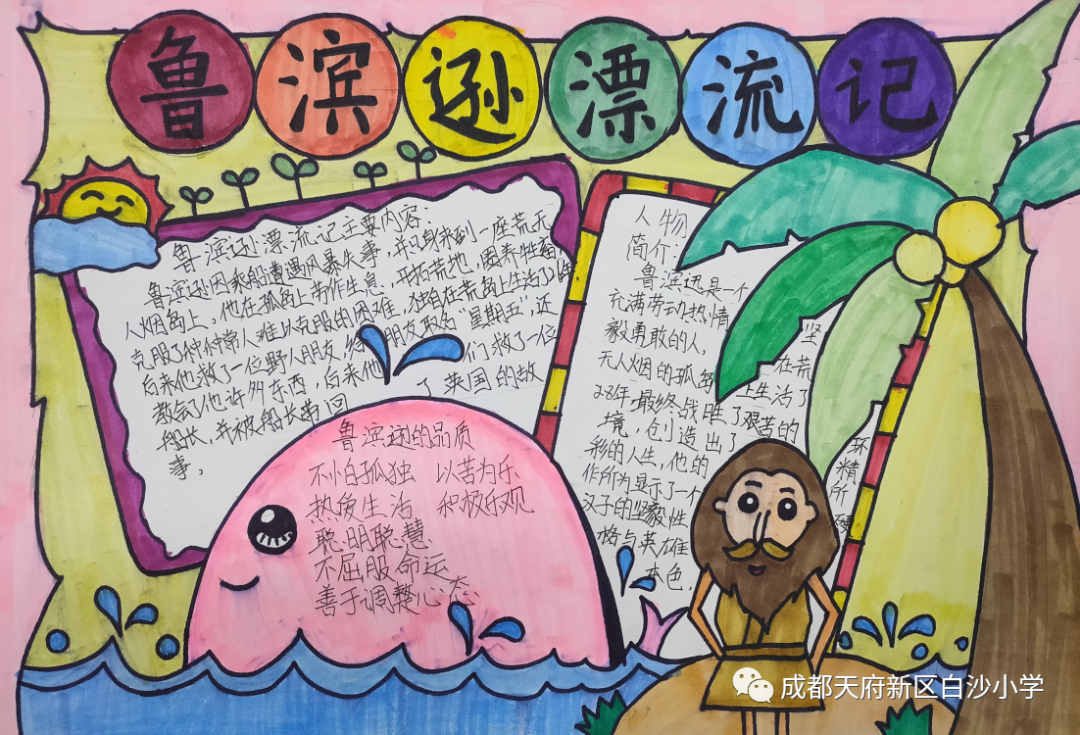 鲁滨逊漂流记
鲁滨逊漂流记主要内容：
鲁滨逊因乘船遭遇风暴失事，并只身来到一座荒无
人烟岛上，他在孤岛上劳作生息，开拓荒地，圈养牲畜，
克服了种种常人难以克服的困难，独自在荒岛上生活了
后来他救了一位野人朋友，给朋友取名“星期五”，还
教会了他许多东西，后来他们救了一位
船长，并被船长带回了英国的故
事。
人物
简介：
鲁滨逊是一个
充满劳动热情坚
毅勇敢的人，
无人烟的孤岛上生活了
28年，最终战胜了艰苦的环
境，创造出了精
彩的人生，他的所
作所为显示了一个硬
汉子的坚毅性
格与英雄
本色。
鲁滨逊的品质
不怕孤独 以苦为乐
热爱生活 积极乐观
聪明聪慧
不屈服命运
善于调整心态
成都天府新区白沙小学